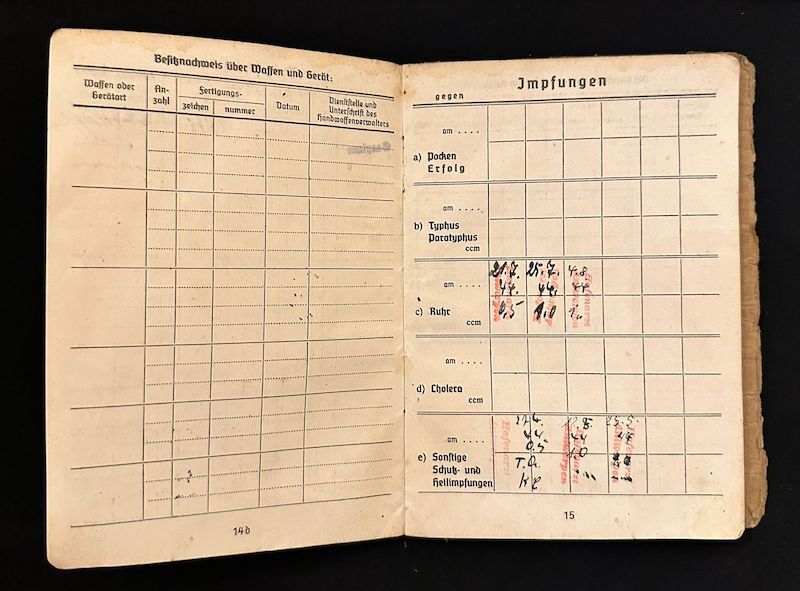 Besitznachweis über Waffen und Gerät:
Waffen oder Gerätart
An-zahl
Fertigungs-
zeichen
nummer
Datum
Dienststelle und Unterschrift des Handwaffenverwalters
14d
Impfungen
gegen
am ....
a) Pocken
Erfolg
am ....
b) Typhus
Paratyphus
ccm
21.7. 25.7. 4.8
am .... 44. 44. 44
c) Ruhr 0,5 1,0 1,
ccm
am ....
d) Cholera
ccm
am .... 44 44
0,5 1,0
e) Sonstige T.A.
Schutz- und
Heilimpfungen
15